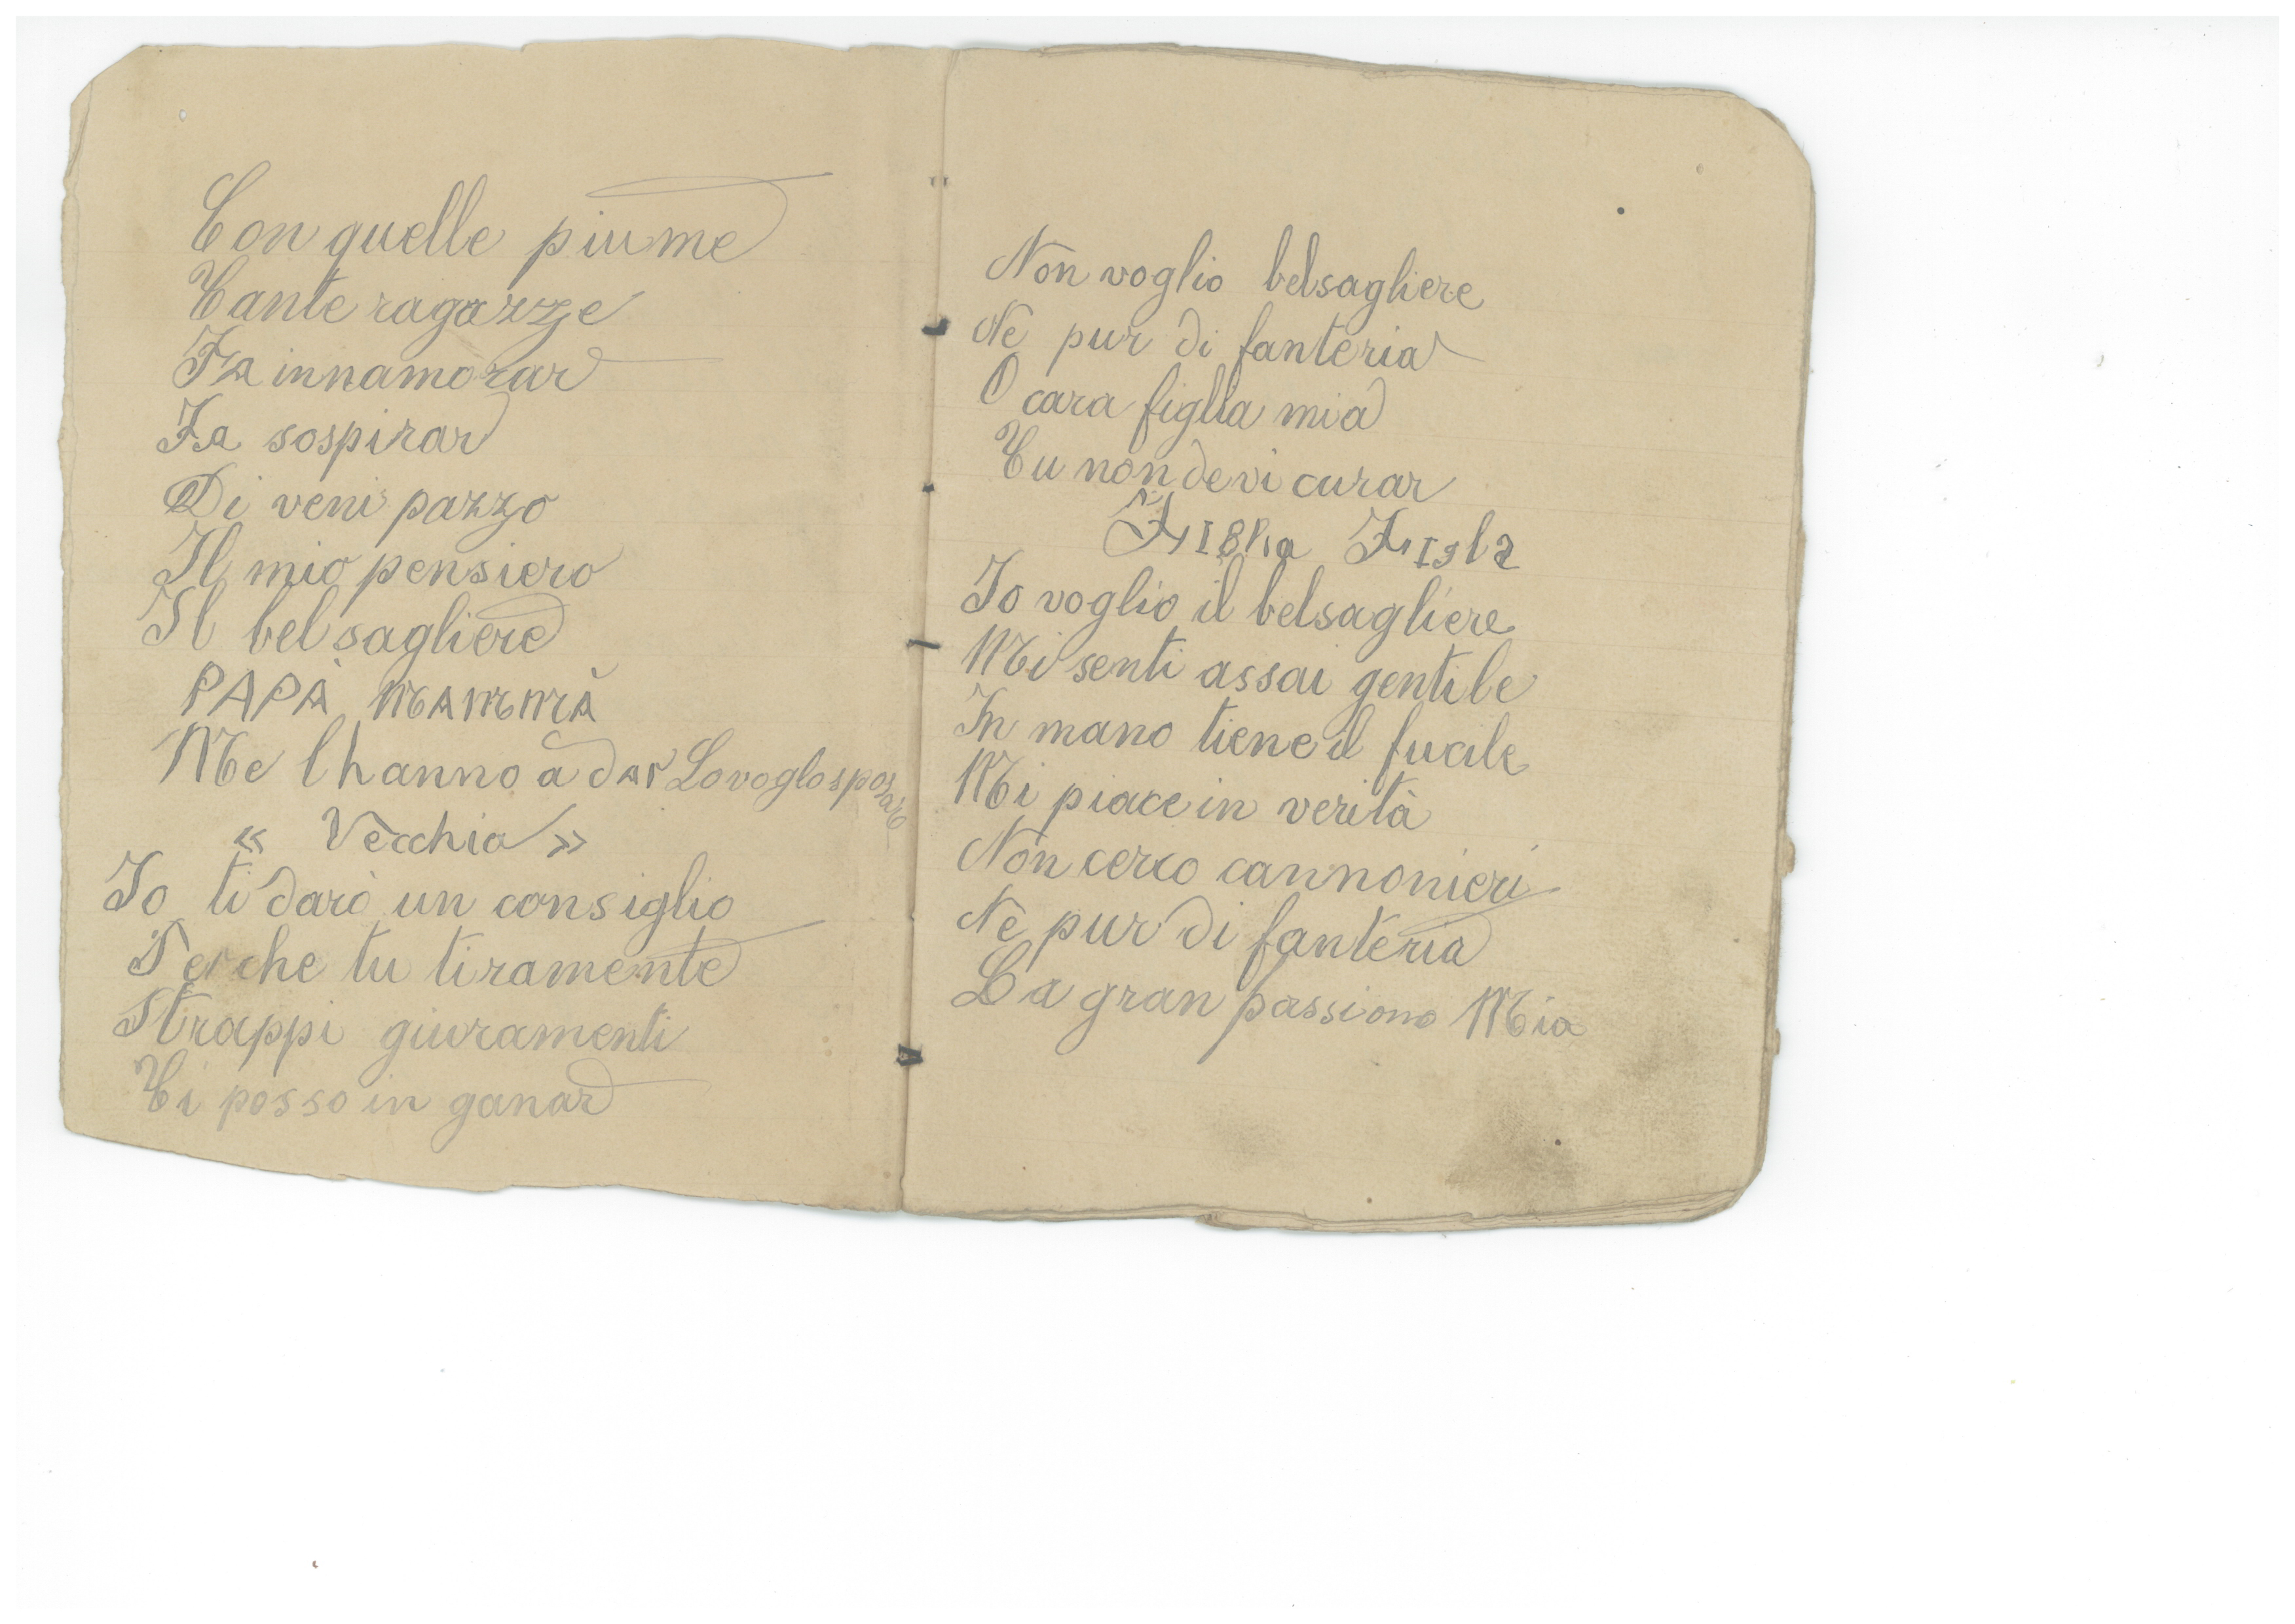 Con quelle piume
Tante ragazze
Fa innamorar
Fa sospirar
Di veni pazzo
Il mio pensiero
Il bel sagliere
PAPÀ MAMMÀ
Me lhanno a dar Lo voglo sposare
« Vecchia »
Io ti darò un consiglio
Perche tu tiramente
Strappi giuramenti
Ti posso in ganar
Non voglio belsagliere
Ne pur di fanteria
O cara figlia mia
Tu non devi curar
Io voglio il belsagliere
Mi senti assai gentile
In mano tiene il fucile
Mi piace in verità
Non cerco cannonieri
Ne pur di fanteria
La gran passione Mia